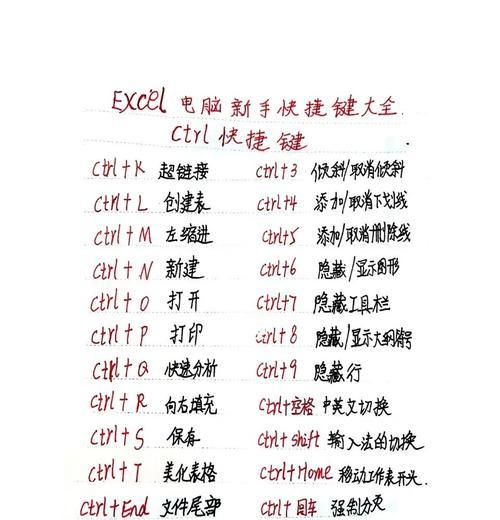 Excel 电脑新手快捷键大全.
Ctrl 快捷键
Ctrl+K 超链接 Ctrl+3 倾斜/取消倾斜
Ctrl+L 创建表 Ctrl+4 添加/取消下划线
Ctrl+M 左缩进 Ctrl+5 添加/取消删除线
Ctrl+N 新建 Ctrl+6 隐藏/显示图形
Ctrl+O 打开 Ctrl+7 隐藏工具栏
Ctrl+P 打印 Ctrl+8 隐藏/显示大纲符号
Ctrl+Q 快速分析 Ctrl+9 隐藏行
Ctrl+R 向右填充 Ctrl+空格 中英文切换
Ctrl+S 保存 Ctrl+shift 输入法的切换
Ctrl+T 美化表格 Ctrl+Home 移动工作表开头
Ctrl+End 文件尾部 Ctrl+回车 强制分页